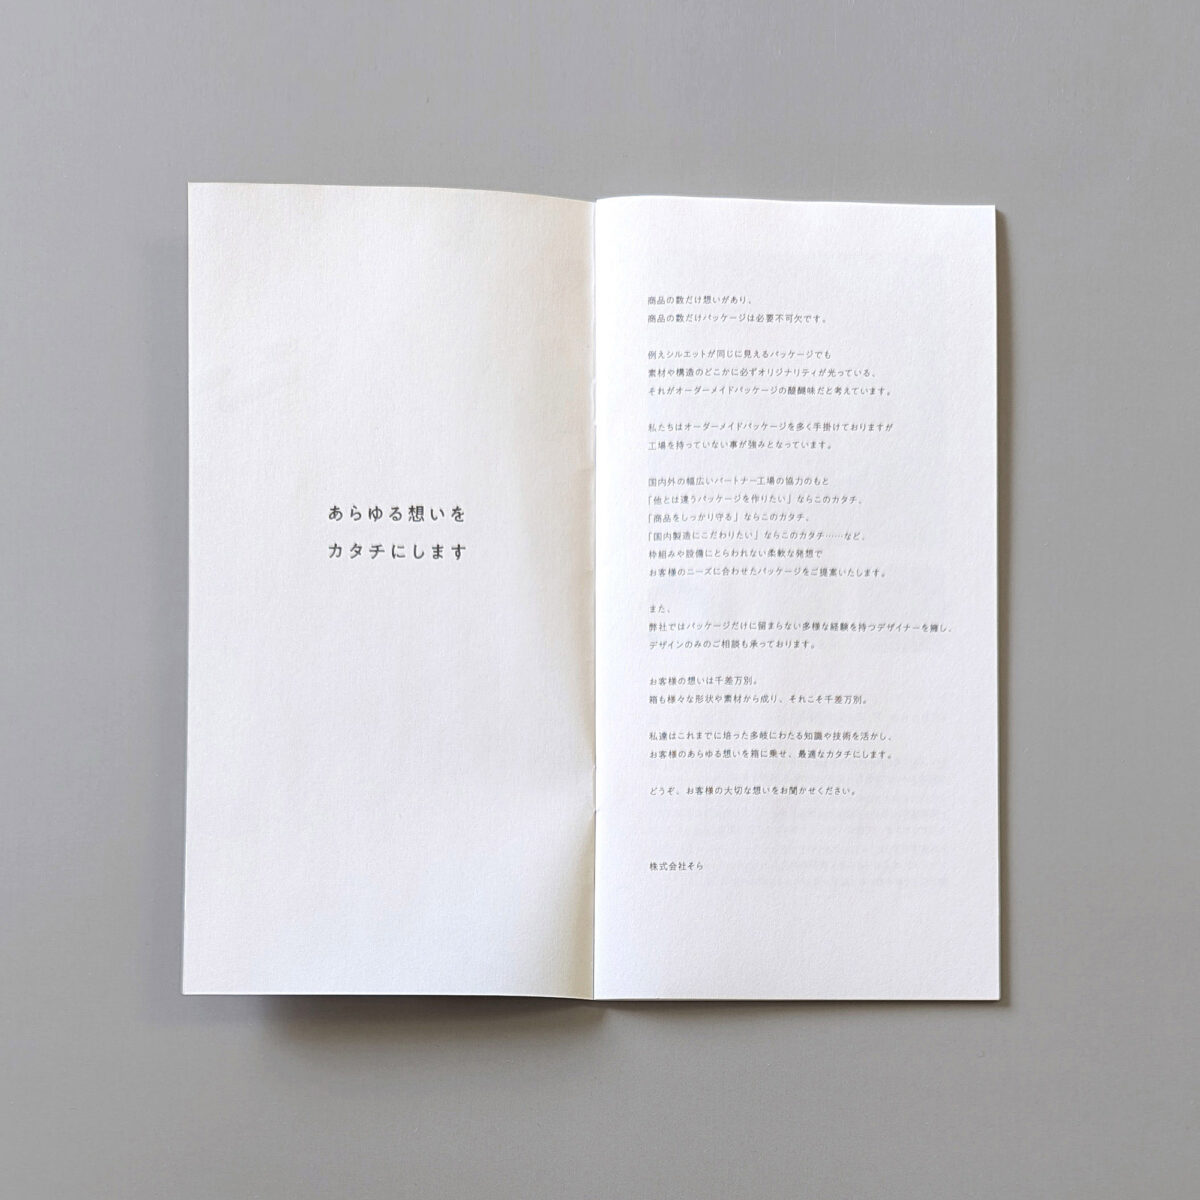 あらゆる想いを
カタチにします
商品の数だけ想いがあり、
商品の数だけパッケージは必要不可欠です。
例えシルエットが同じに見えるパッケージでも
素材や構造のどこかに必ずオリジナリティが光っている、
それがオーダーメイドパッケージの醍醐味だと考えています。
私たちはオーダーメイドパッケージを多く手掛けておりますが
工場を持っていない事が強みとなっています。
国内外の幅広いパートナー工場の協力のもと
「他とは違うパッケージを作りたい」ならこのカタチ、
「商品をしっかり守る」ならこのカタチ、
「国内製造にこだわりたい」ならこのカタチ……など、
枠組みや設備にとらわれない柔軟な発想で
お客様のニーズに合わせたパッケージをご提案いたします。
また、
弊社ではパッケージだけに留まらない多様な経験を持つデザイナーを擁し、
デザインのみのご相談も承っております。
お客様の想いは千差万別。
箱も様々な形状や素材から成り、それこそ千差万別。
私達はこれまでに培った多岐にわたる知識や技術を活かし、
お客様のあらゆる想いを箱に乗せ、最適なカタチにします。
どうぞ、お客様の大切な想いをお聞かせください。
株式会社そら